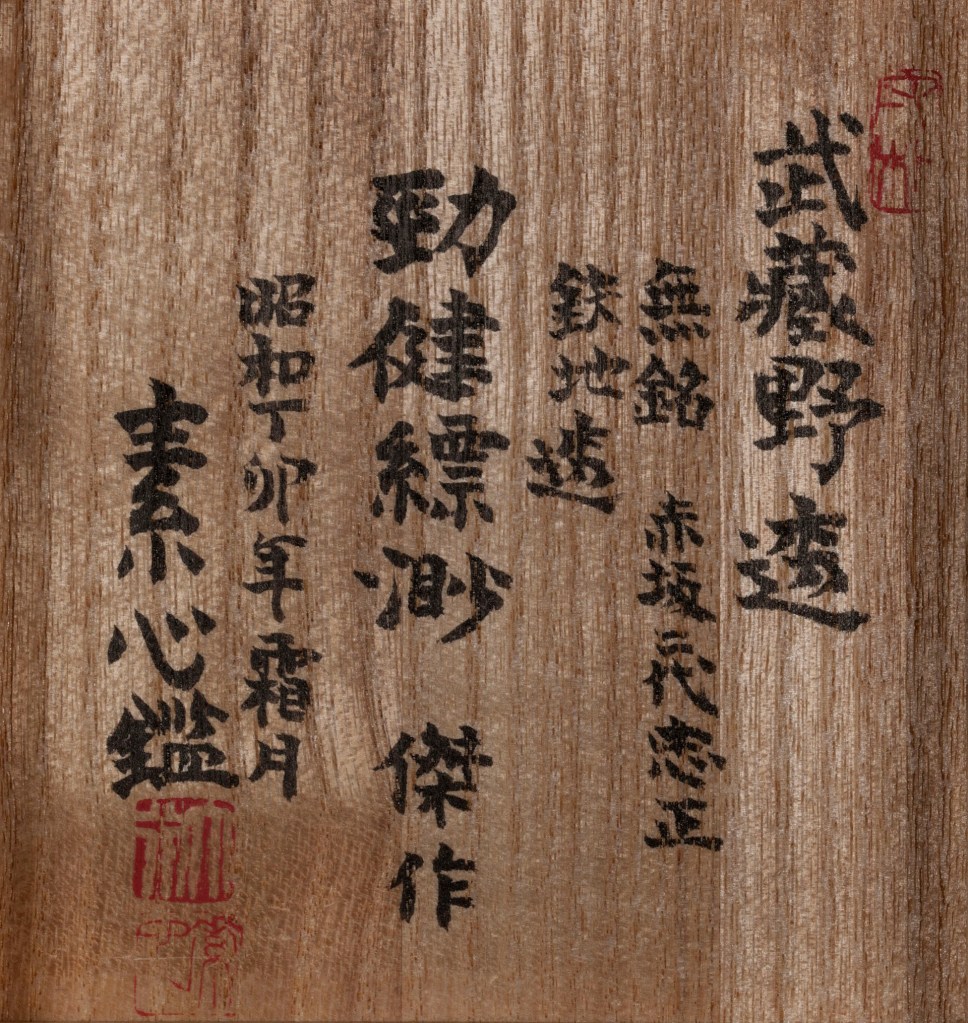 武藏野透
無銘 赤坂二代忠正
鉄地造
勁健縹渺 傑作
昭和丁卯年霜月
素心鑑